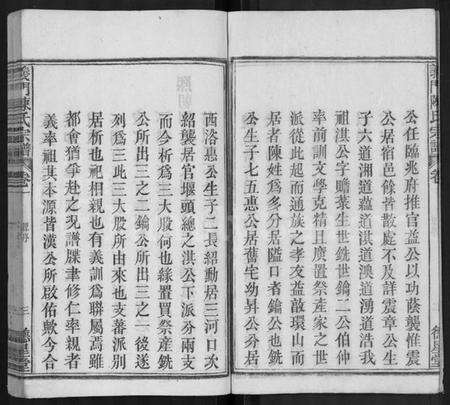 義門陳氏宗譜
公任臨兆府推官益公以功蔭襲惟震
公居宿邑像者散處不及詳震章公生
子六道湘道蘊道淇道澳道湧道浩我
祖淇公字贍菉生世銑世鑰二公伯仲
率前訓文學克精且廣置祭產家之世
派從此起而通族之孝友益敵環山而
居者陳姓爲多分居隘口者鑰公也銑
公生子七五惠公居舊宅幼昇公分居
西洛惠公生子二長紹動居三河口次
紹襲居官堰頭總之淇公下派分兩支
而今析爲三大股何也緣置買祭產銑
公所出三之二鑰公所出三之一後遂
列爲三此三大股所由來也支蕃派別
居析也祀相親也有義訓爲聯屬焉雖
都會猶爭赴之況譜牒聿修仁率親者
義奉祖其本源皆漢公所啟佑歟今合
義門陳氏宗譜
三